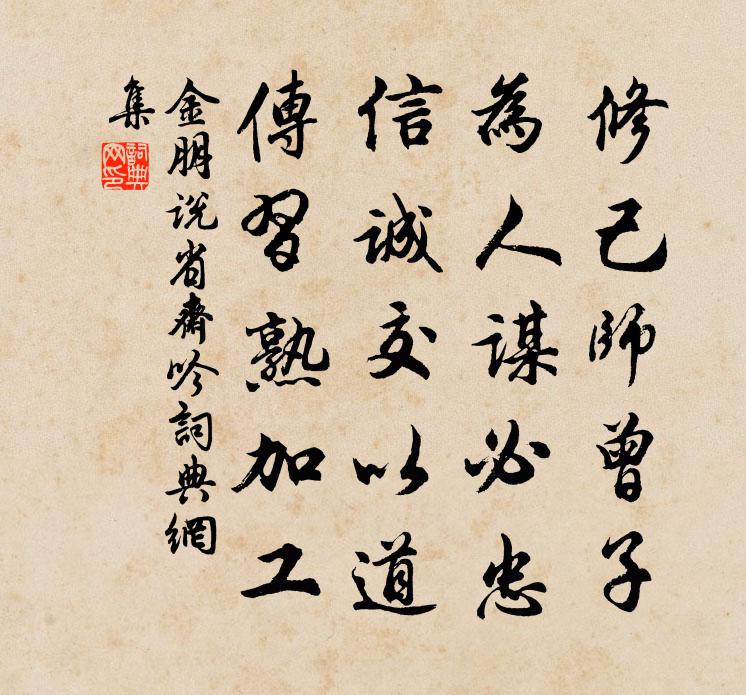 修己師曾子
為人謀必忠
信誠交以道
傳習熟加工
金朋説省齋吟詞典網
集
詞典
網印